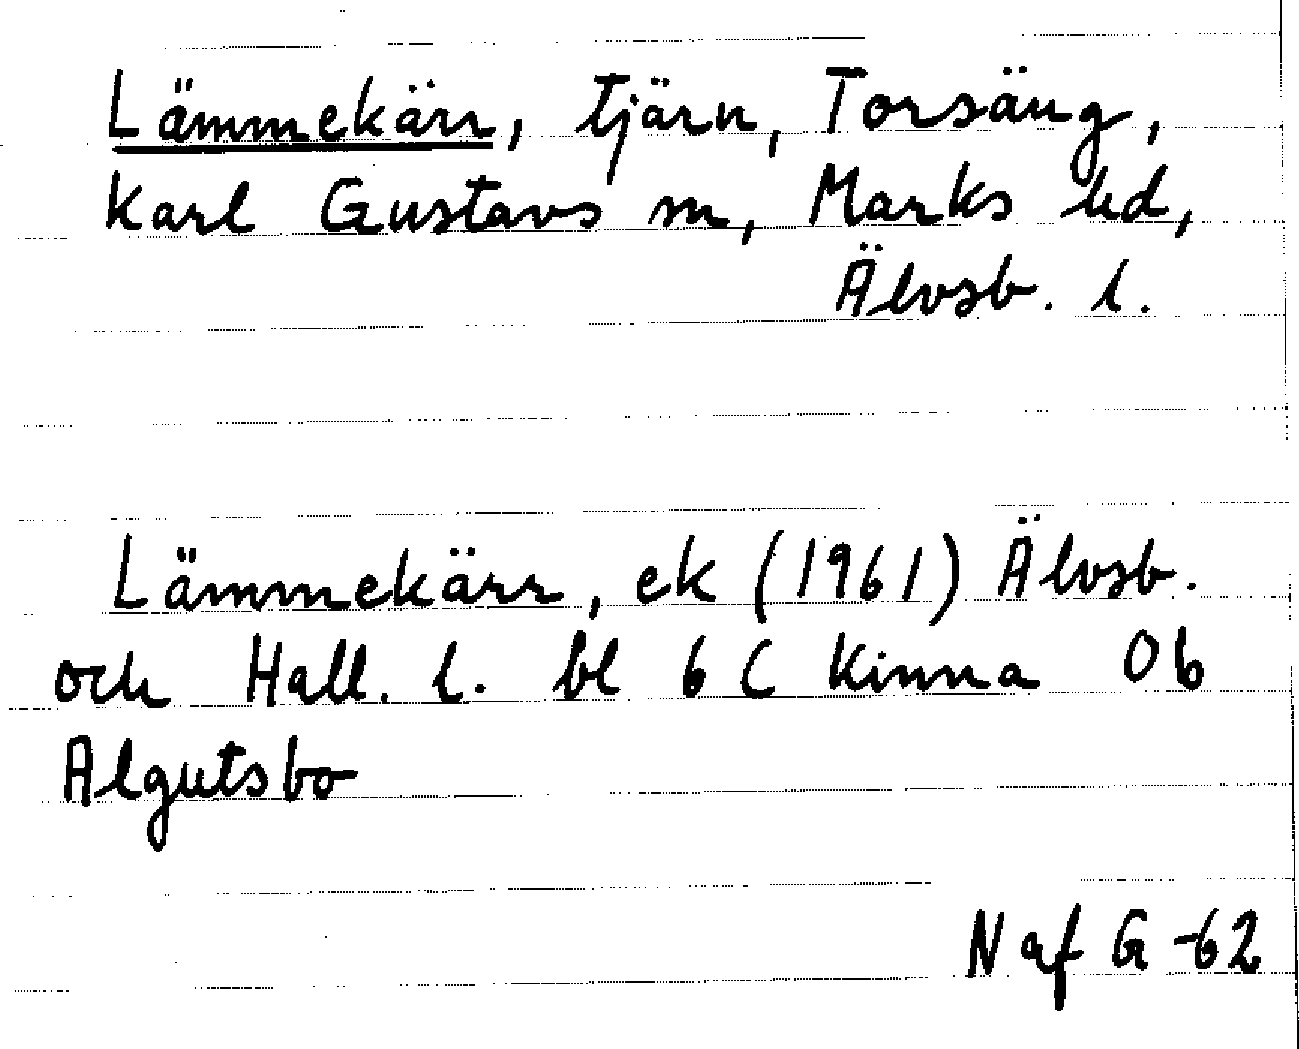 Lämmekärr, tjärn, Torsäng,
Karl Gustavs sn, Marks hd,
Älvsb. l.
Lämmekärr, ek (1961) Älvsb.
och Hall. l. bl 6 C Kinna 0b
Algutsbo
N af G -62